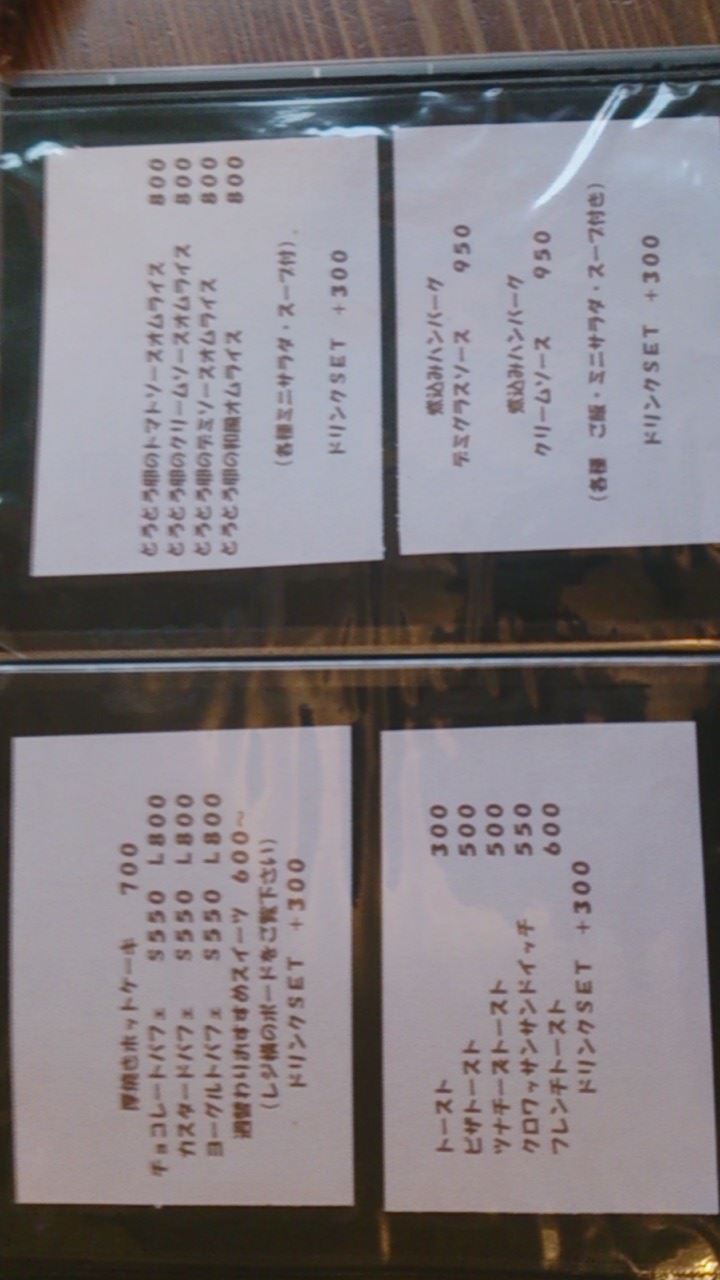 厚焼きホットケーキ 700
チョコレートパフェ S550 L800
カスタードパフェ S550 L800
ヨーグルトパフェ S550 L800
週替わりおすすめスイーツ 600~
(レジ横のボードをご覧下さい)
ドリンクSET +300
トースト 300
ピザトースト 500
ツナチーズトースト 500
クロワッサンサンドイッチ 550
フレンチトースト 600
ドリンクSET +300
とろとろ卵のトマトソースオムライス 800
とろとろ卵のクリームソースオムライス 800
とろとろ卵のデミソースオムライス 800
とろとろ卵の和風オムライス 800
(各種ミニサラダ・スープ付).
ドリンクSET +300
煮込みハンバーグ
デミグラスソース 950
煮込みハンバーグ
クリームソース 950
(各種 ご飯・ミニサラダ・スープ付き)
ドリンクSET +300